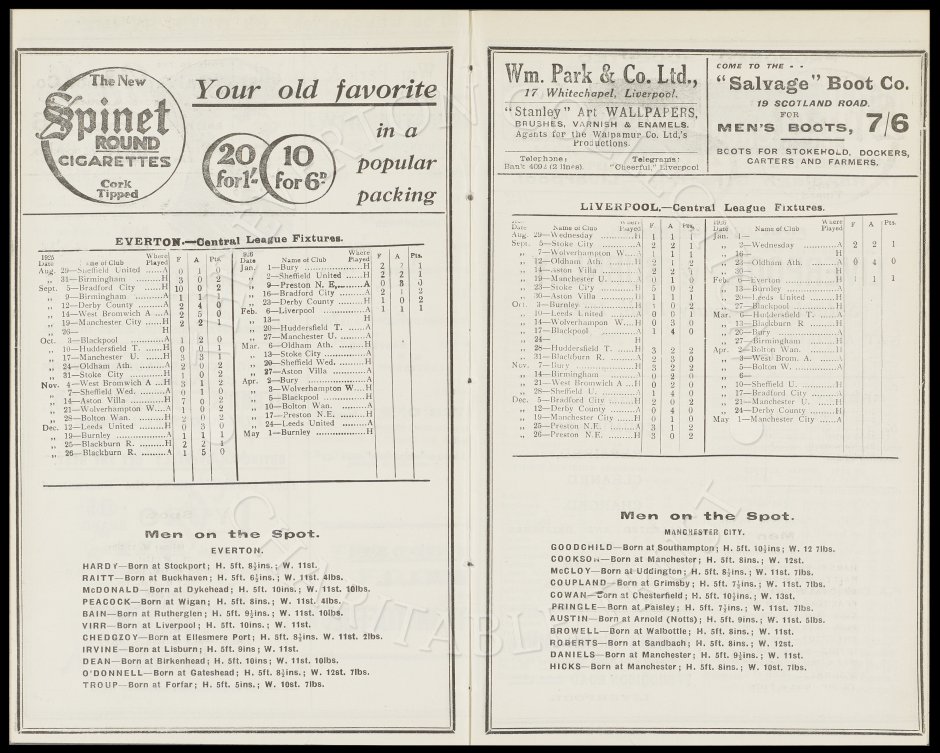 The New
Spinet
ROUND
CIGARETTES
Cork
Tipped
Your old favorite
in a
popular
packing
20
for 1/-
10
for 6D.
EVERTON.—Central League Fixtures.
1925
Date Name of Club Where Played F A Pts.
Aug. 29—Sheffield United ......A 0 1 0
„ 31—Birmingham ............H 3 0 2
Sept. 5—Bradford City ......H 10 0 2
„ 9—Birmingham ............A 1 1 1
„ 12—Derby County .........A 2 4 0
„ 14—West Bromwich A ...A 2 5 0
„ 19—Manchester City ......H 2 2 1
„ 26— H
Oct. 3—Blackpool ............A 1 2 0
„ 10—Huddersfield T. ......H 0 0 1
„ 17—Manchester U. ......H 3 3 1
„ 24—Oldham Ath. .........H 2 0 2
„ 31—Stoke City ............H 1 0 2
Nov. 4—West Bromwich A ...H 3 1 2
„ 7—Sheffield Wed. .........A 0 1 0
„ 14—Aston Villa ............H 7 0 2
„ 21—Wolverhampton W....A 1 0 2
„ 28—Bolton Wan. .........H 2 0 2
Dec. 12—Leeds United .........H 0 3 0
„ 19—Burnley ...............A 1 1 1
„ 25—Blackburn R. .........H 2 2 1
„ 26—Blackburn R. .........A 1 5 0
1926
Date Name of Club Where Played F A Pts.
Jan. 1—Bury ..................H 2 2 1
„ 2—Sheffield United ......H 2 2 1
„ 9—Preston N. E..........A 0 3 0
„ 16—Bradford City .........A 2 1 2
„ 23—Derby County .........H 1 0 2
Feb. 6—Liverpool ...............A 1 1 1
„ 13— H
„ 20—Huddersfield T. ......A
„ 27—Manchester U. .........A
Mar. 6—Oldham Ath. .........A
„ 13—Stoke City ............A
„ 20—Sheffield Wed. .........H
„ 27—Aston Villa ............A
Apr. 2—Bury ..................A
„ 3—Wolverhampton W....H
„ 5—Blackpool ............H
„ 10—Bolton Wan. .........A
„ 17—Preston N.E. .........H
„ 24—Leeds United .........A
May 1—Burnley ...............H
Men on the Spot.
EVERTON.
HARDY—Born at Stockport; H. 5ft. 8½ins.; W. 11st.
RAITT—Born at Buckhaven; H. 5ft. 6½ins.; W. 11st. 4lbs.
McDONALD—Born at Dykehead; H. 5ft. 10ins.; W. 11st. 10lbs.
PEACOCK—Born at Wigan; H. 5ft. 8ins.; W. 11st. 4lbs.
BAIN—Born at Rutherglen; H. 5ft. 9½ins.; W. 11st. 10lbs.
VIRR—Born at Liverpool; H. 5ft. 10ins.; W. 11st.
CHEDGZOY—Born at Ellesmere Port; H. 5ft. 8½ins. W. 11st. 2lbs.
IRVINE—Born at Lisburn; H. 5ft. 9ins; W. 11st.
DEAN—Born at Birkenhead; H. 5ft. 10ins; W. 11st. 10lbs.
O'DONNELL—Born at Gateshead; H. 5ft. 8½ins.; W. 12st. 7lbs.
TROUP—Born at Forfar; H. 5ft. 5ins.; W. 10st. 7lbs.
Wm. Park & Co. Ltd.,
17 Whitechapel, Liverpool.
"Stanley" Art WALLPAPERS,
BRUSHES, VARNISH & ENAMELS.
Agents for the Walpamur Co. Ltd.'s
Productions.
Telephone:
Bank 4094 (2 lines).
Telegrams:
"Cheerful," Liverpool
COME TO THE - -
"Salvage" Boot Co.
19 SCOTLAND ROAD.
FOR
MEN'S BOOTS, 7/6
BOOTS FOR STOKEHOLD, DOCKERS,
CARTERS AND FARMERS.
LIVERPOOL.—Central League Fixtures.
Date Name of Club Where Played F A Pts.
Aug. 29—Wednesday ............H 1 1 1
Sept. 5—Stoke City ............A 2 2 1
„ 7—Wolverhampton W...H 1 1 1
„ 12—Oldham Ath. .........H 2 1 2
„ 14—Aston Villa ............A 2 2 1
„ 19—Manchester U. .........A 0 1 0
„ 23—Stoke City ............H 5 0 2
„ 30—Aston Villa ............H 1 1 1
Oct. 3—Burnley ...............H 1 0 2
„ 10—Leeds United .........A 0 0 1
„ 14—Wolverhampton W...H 0 3 0
„ 17—Blackpool ............A 1 4 0
„ 24— H
„ 28—Huddersfield T. ......H 3 2 2
„ 31—Blackburn R. .........A 2 3 0
Nov. 7—Bury ..................H 3 2 2
„ 14—Birmingham .........A 0 2 0
„ 21—West Bromwich A ...H 0 2 0
„ 28—Sheffield U. .........A 1 4 0
Dec. 5—Bradford City .........H 2 0 2
„ 12—Derby County .........A 0 4 0
„ 19—Manchester City ......A 0 1 0
„ 25—Preston N.E. .........A 3 1 2
„ 26—Preston N.E. .........H 3 0 2
1926
Date Name of Club Where Played F A Pts.
Jan. 1—
„ 2—Wednesday ............A 2 2 1
„ 16— H
„ 23—Oldham Ath. .........A 0 4 0
„ 30—
Feb. 6—Everton ...............H 1 1
„ 13—Burnley ...............A
„ 20—Leeds United .........H
„ 27—Blackpool ............H
Mar. 6—Huddersfield T. ......A
„ 13—Blackburn R .........H
„ 20—Bury ..................A
„ 27—Birmingham .........H
Apr. 2—Bolton Wan. .........H
„ 3—West Brom. A. ......A
„ 5—Bolton W. ............A
„ 6—
„ 10—Sheffield U. .........H
„ 17—Bradford City .........A
„ 21—Manchester U. .........H
„ 24—Derby County .........H
May 1—Manchester City ......A
Men on the Spot.
MANCHESTER CITY.
GOODCHILD—Born at Southampton; H. 5ft. 10½ins; W. 12 7lbs.
COOKSON—Born at Manchester; H. 5ft. 8ins.; W. 12st.
McCLOY—Born at Uddington; H. 5ft. 8½ins.; W. 11st. 7lbs.
COUPLAND—Born at Grimsby; H. 5ft. 7½ins.; W. 11st. 7lbs.
COWAN—Born at Chesterfield; H. 5ft. 10½ins.; W. 13st.
PRINGLE—Born at Paisley; H. 5ft. 7½ins.; W. 11st. 7lbs.
AUSTIN—Born at Arnold (Notts); H. 5ft. 9ins.; W. 11st. 5lbs.
BROWELL—Born at Walbottle; H. 5ft. 8ins.; W. 11st.
ROBERTS—Born at Sandbach; H. 5ft. 8ins.; W. 12st.
DANIELS—Born at Manchester; H. 5ft. 9½ins.; W. 11st.
HICKS—Born at Manchester; H. 5ft. 8ins.; W. 10st. 7lbs.